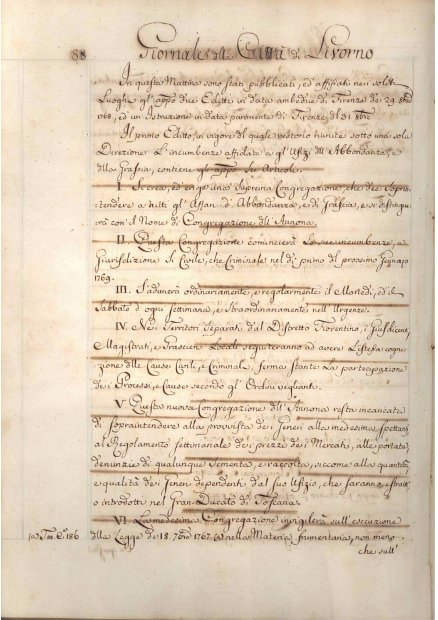 88 Giornale della Città di Livorno
In questa Mattina sono stati pubblicati, ed affissati nei soliti
Luoghi gl' appo due Editti in data ambedue di Firenze de 29. 8bre
1768, ed un Istruzione in data parimente di Firenze del 31. 8bre
Il primo Editto, in vigore del quale restono riunite sotto una sola
Direzione L'incumbenze affidate a gl' Ufizj dell' Abbondanza, e
della Grascia, contiene gl' appo sei Articoli.
I. Si crea, ed erige una Suprema Congregazione, che dee Sopran-
tendere a tutti gl' Affari d' Abbondanza, e di Grascia, e si distingue-
rà con il Nome di Congregazione dell' Annona.
II. Questa Congregazione comincierà le sue incumbenze, e
Giurisdizione sì Civile, che Criminale nel dì primo del prossimo Gennaio
1769.
III. S'adunerà ordinariamente, e regolarmente il Martedì, ed il
Sabbato d' ogni settimana, e straordinariamente nell' Urgenze.
IV. Nei Territori Separati dal Distretto Fiorentino, i Giusdicenti,
Magistrati, e Grascieri Locali seguiteranno ad avere L'istessa cogni-
zione delle Cause Civili, e Criminale, ferma stante la partecipazione
dei Processi, e Cause secondo gl' Ordini veglianti.
V. Questa nuova Congregazione dell' Annona resta incaricata
di sopraintendere alla provvista dei Generi alla medesima spettanti,
al Regolamento settimanale dei prezzi dei Mercati, alle portate,
denunzie di qualunque Sementa, e raccolta, siccome alla quantità,
e qualità dei Generi dependenti dal suo Ufizio, che saranno estratti,
o introdotti nel Gran-Ducato di Toscana.
VI. La medesima Congregazione invigilerà sull' esecuzione
della Legge de 18. 7bre 1767. (a) nella Materia frumentaria, non meno
(a) Tom. C. 186
che sull'